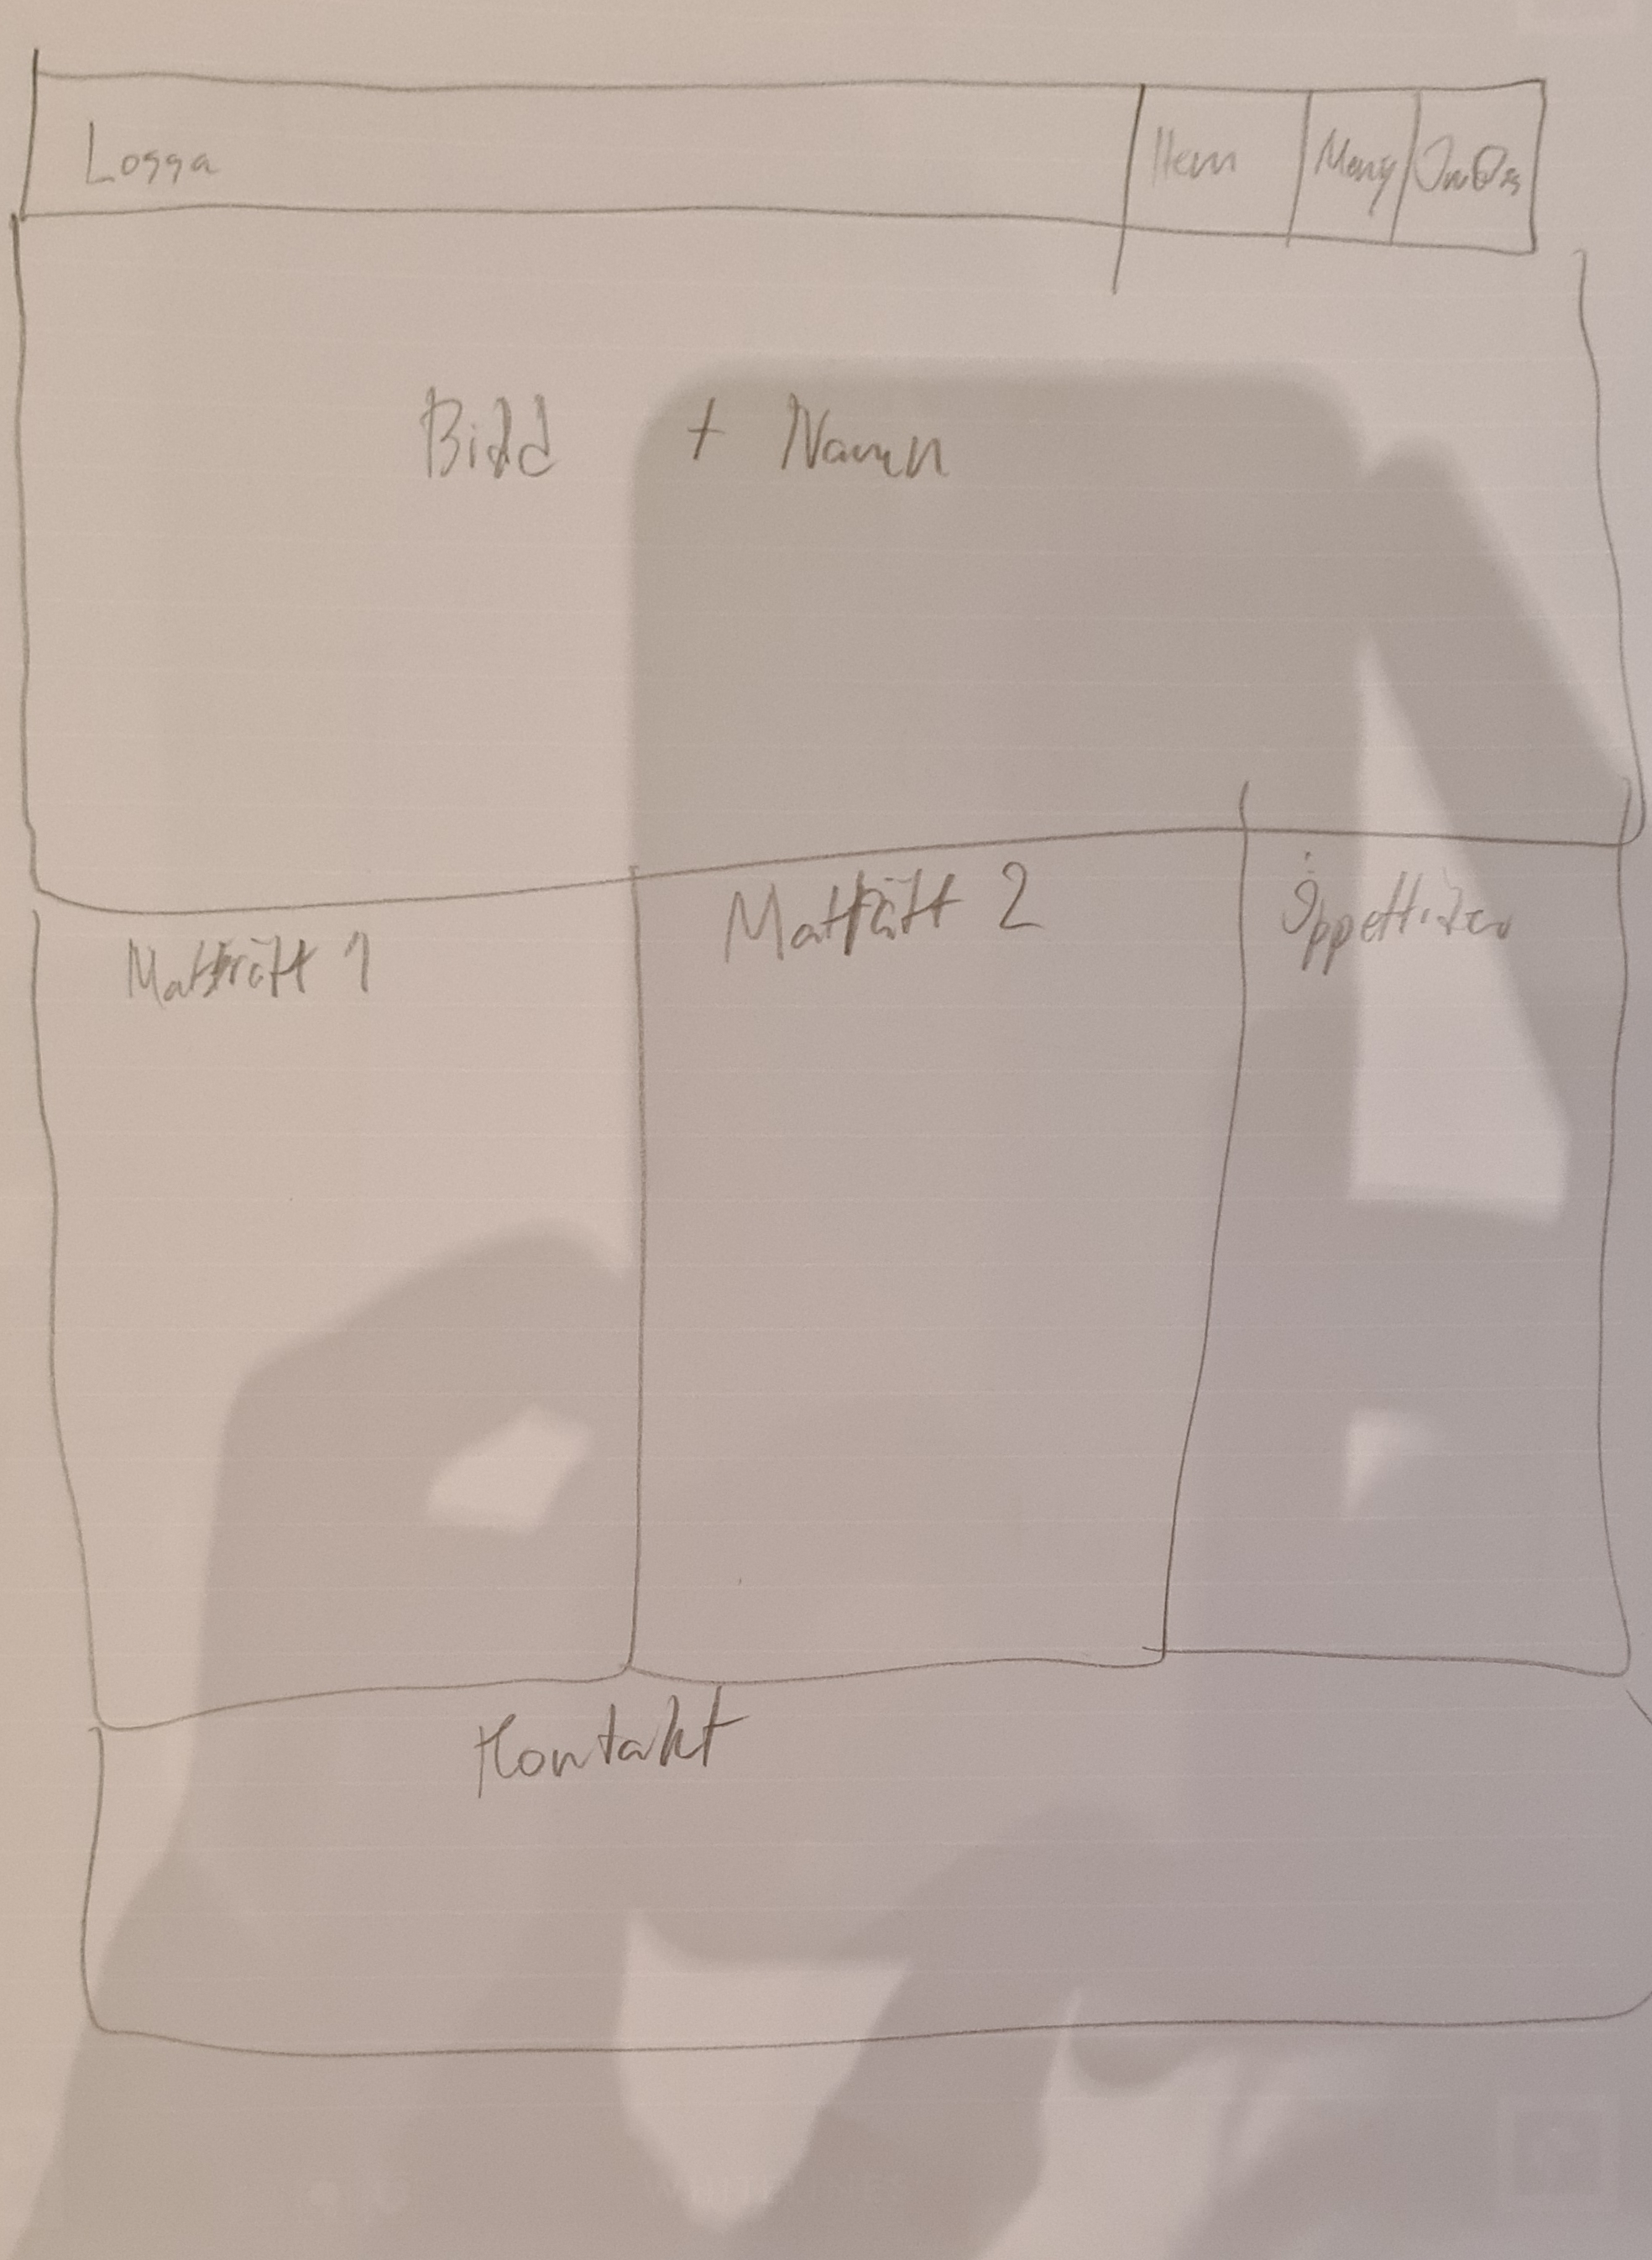 Logga Hem Meny Om Oss
Bild + Namn
Maträtt 1 Maträtt 2
Kontakt